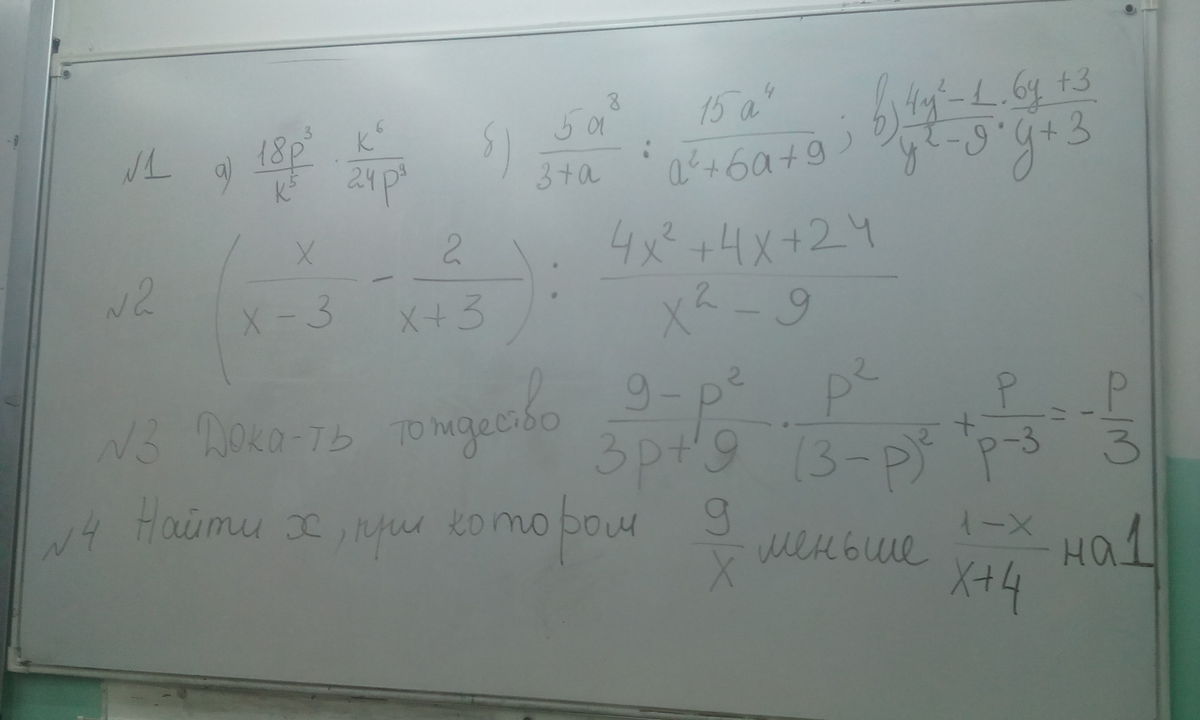 №1 а) 18p³/k⁵ · k⁶/24p⁹ б) 5a⁸/3+a : 15a⁴/a²+6a+9 ; в) 4y²-1/y²-9 : 6y+3/y+3
№2 (x/x-3 - 2/x+3) : 4x²+4x+24/x²-9
№3 Дока-ть тождество 9-p²/3p+9 · p²/(3-p)² + p/p-3 = -p/3
№4 Найти x, при котором 9/x меньше 1-x/x+4 на 1